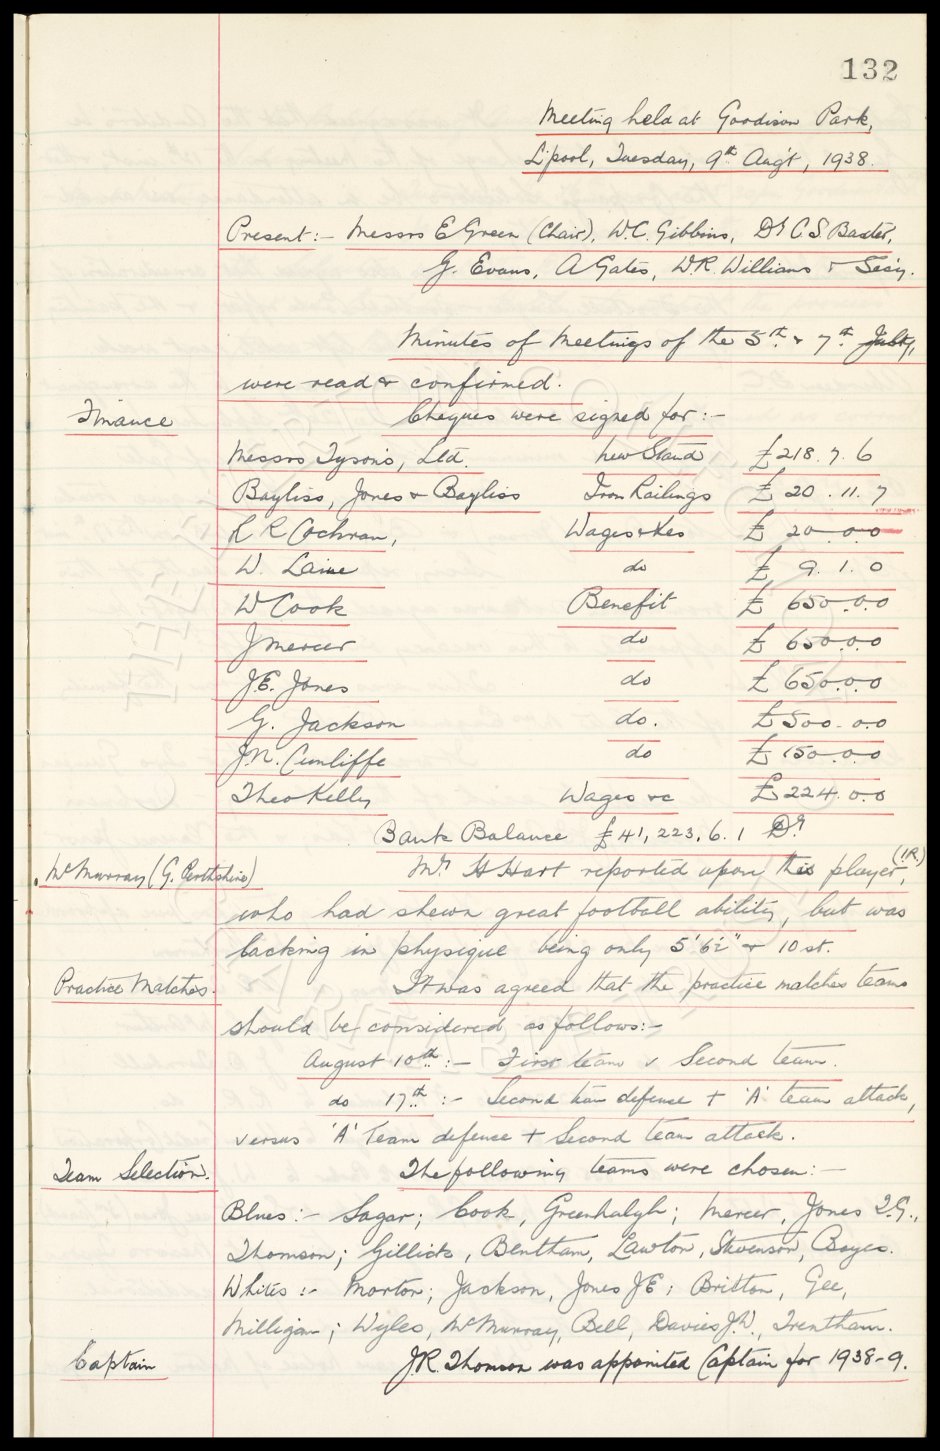 132
Meeting held at Goodison Park,
L'pool, Tuesday, 9th Aug't, 1938.
Present:- Messrs E Green (Chair), W.C. Gibbins, Dr C.S. Baxter,
G. Evans, A Gates, W.R. Williams & Sec'y.
Minutes of Meetings of the 5th & 7th July,
were read & confirmed.
Finance
Cheques were signed for:-
Messrs Tysons, Ltd. New Stand £218.7.6
Bayliss, Jones & Bayliss Iron Railings £20.11.7
R R Cochran, Wages & Xes £20.0.0
W. Laine do £9.1.0
W Cook Benefit £650.0.0
J Mercer do £650.0.0
J.E. Jones do £650.0.0
G. Jackson do. £500.0.0
J.N. Cunliffe do £150.0.0
Theo Kelly Wages &c £224.0.0
Bank Balance £41,223.6.1 Dr
McMurray (G. Perthshire) Mr. H Hart reported upon this player, (I.R.)
who had shewn great football ability, but was
lacking in physique being only 5'6½" & 10 st.
Practice Matches. It was agreed that the practice matches teams
should be considered as follows:-
August 10th:- First team v Second team.
do 17th:- Second team defence + 'A' team attack,
versus 'A' Team defence + Second team attack.
Team Selection. The following teams were chosen:-
Blues:- Sagar; Cook, Greenhalgh; Mercer, Jones T.G.,
Thomson; Gillick, Bentham, Lawton, Stevenson, Boyes.
Whites:- Morton; Jackson, Jones J E; Britton, Gee,
Milligan; Wyles, McMurray, Bell, Davies J.W., Trentham.
Captain J.R. Thomson was appointed Captain for 1938-9.